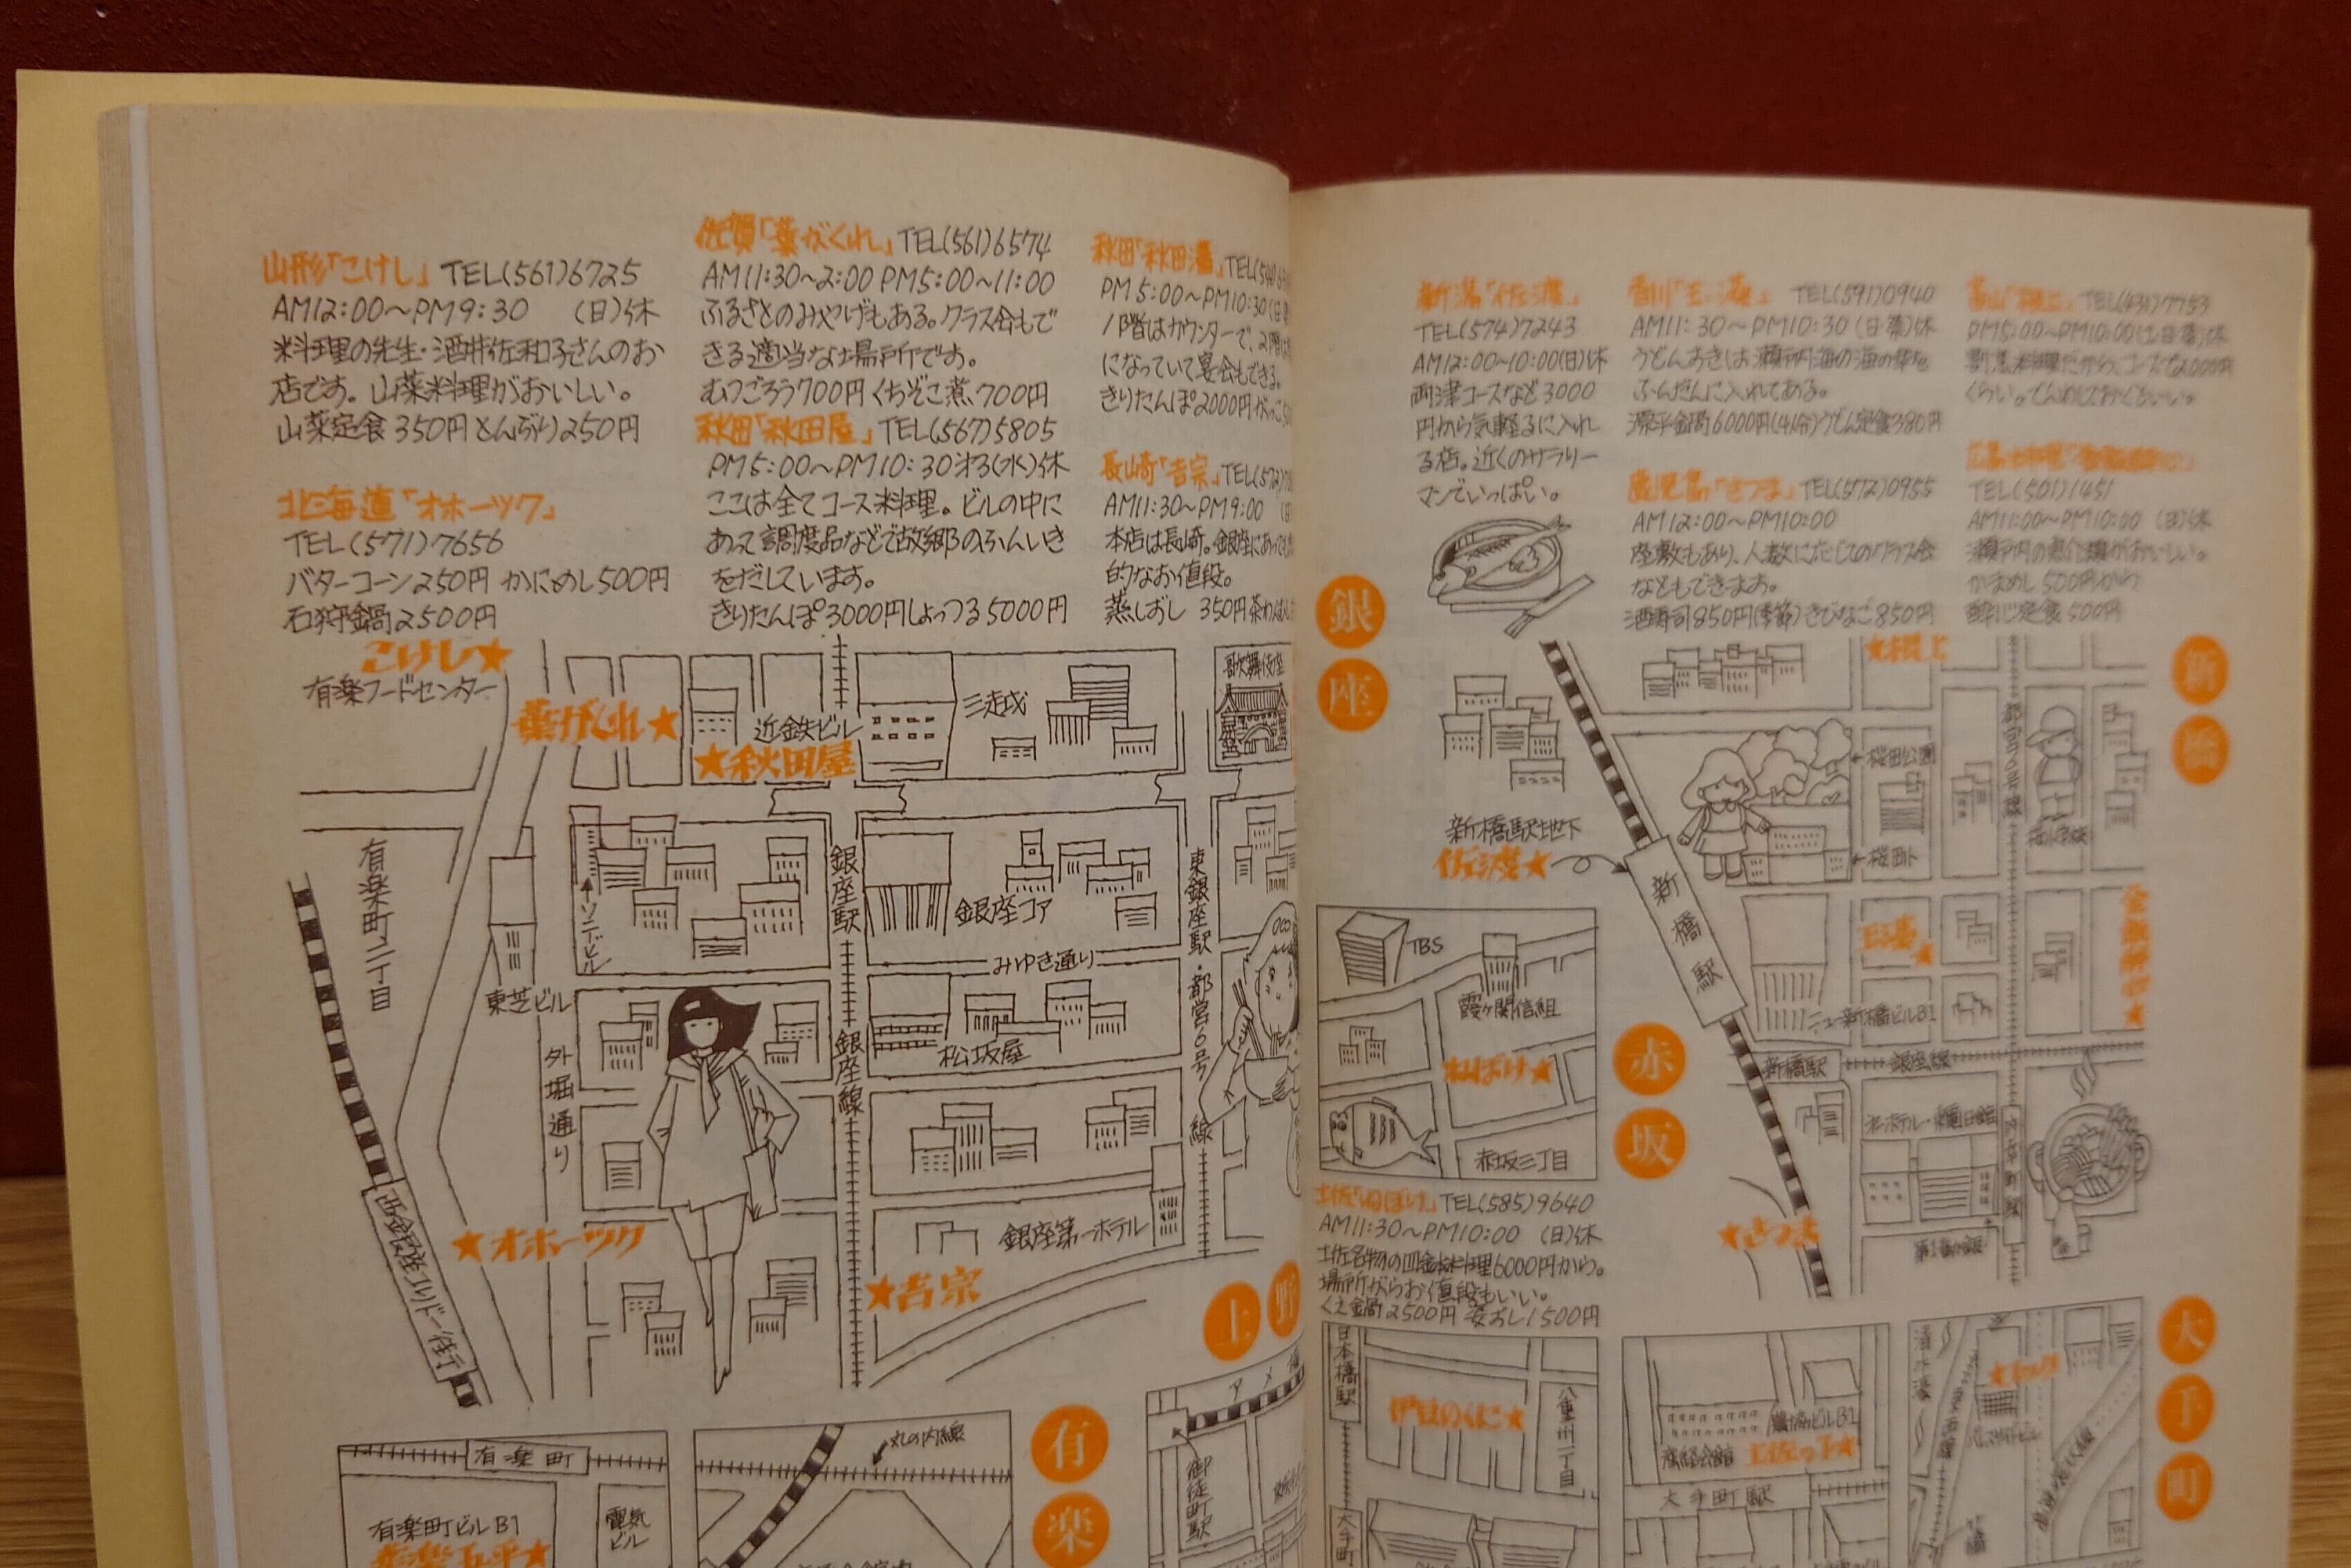 山形「こけし」 TEL(561)6725
AM12:00〜PM9:30 (日)休
料理の先生・酒井佐和子さんのお
店です。山菜料理がおいしい。
山菜定食350円とんぶり250円
北海道「オホーツク」
TEL(571)7656
バターコーン250円 かにめし500円
石狩鍋2500円
佐賀「葉がくれ」TEL(561)6574
AM11:30〜2:00 PM5:00〜11:00
ふるさとのみやげもある。クラス会もで
きる適当な場所です。
むつごろう700円くちぞこ煮700円
秋田「秋田屋」TEL(567)5805
PM5:00〜PM10:30オ3(水)休
ここは全てコース料理。ビルの中に
あって調度品などで故郷のふんいき
をだしています。
きりたんぽ3000円しょっつる5000円
秋田「秋田
PM5:00〜PM10:30
1階はカウンターで、2階
になっていて宴会もできる。
きりたんぽ2000円
長崎「吉宗」TEL(572)
AM11:30〜PM9:00
本店は長崎。銀座にあっても
的なお値段。
蒸しずし 350円
こけし★
有楽フードセンター
葉がくれ★
近鉄ビル
★秋田屋
三越
歌舞伎座
有楽町二丁目
ソニービル
銀座駅
銀座コア
東銀座駅・都営6号線
みゆき通り
東芝ビル
松坂屋
外堀通り
銀座線
西銀座
★オホーツク
銀座第一ホテル
★吉宗
上野
有楽町
丸の内線
有楽
有楽町ビルB1
電気ビル
アメ
御徒町駅
新潟「佐渡」
TEL(574)7243
AM12:00〜10:00(日)休
両津コースなど3000
円から気軽るに入れ
る店。近くのサラリー
マンでいっぱい。
香川 TEL(591)0940
AM11:30〜PM10:30(日・祭)休
うどんすきは瀬戸内海の海の幸を
ふんだんに入れてある。
源平金鍋6000円(4人分)うどん定食380円
鹿児島「さつま」TEL(572)0955
AM12:00〜PM10:00
座敷もあり、人数に応じてのクラス会
などもできます。
酒寿司850円(季節)きびなご850円
富山 TEL(431)7753
PM5:00〜PM10:00(土・日・祭)休
くらい。でんわしておくといい。
TEL(501)1451
AM11:00〜PM10:00 (日)休
かまめし500円から
定食500円
銀座
新橋
新橋駅地下
佐渡★
新橋駅
桜田公園
ニュー新橋ビルB1
新橋駅
銀座線
★さつま
TBS
霞ヶ関信組
ねぼけ★
赤坂三丁目
赤坂
土佐「ねぼけ」TEL(585)9640
AM11:30〜PM10:00 (日)休
土佐名物の皿鉢料理6000円から。
場所がらお値段もいい。
くえ鍋2500円 姿ずし1500円
日本橋駅
伊豆のくに★
八重洲一丁目
大手町
産経会館
土佐っ子★
大手町駅
大手町